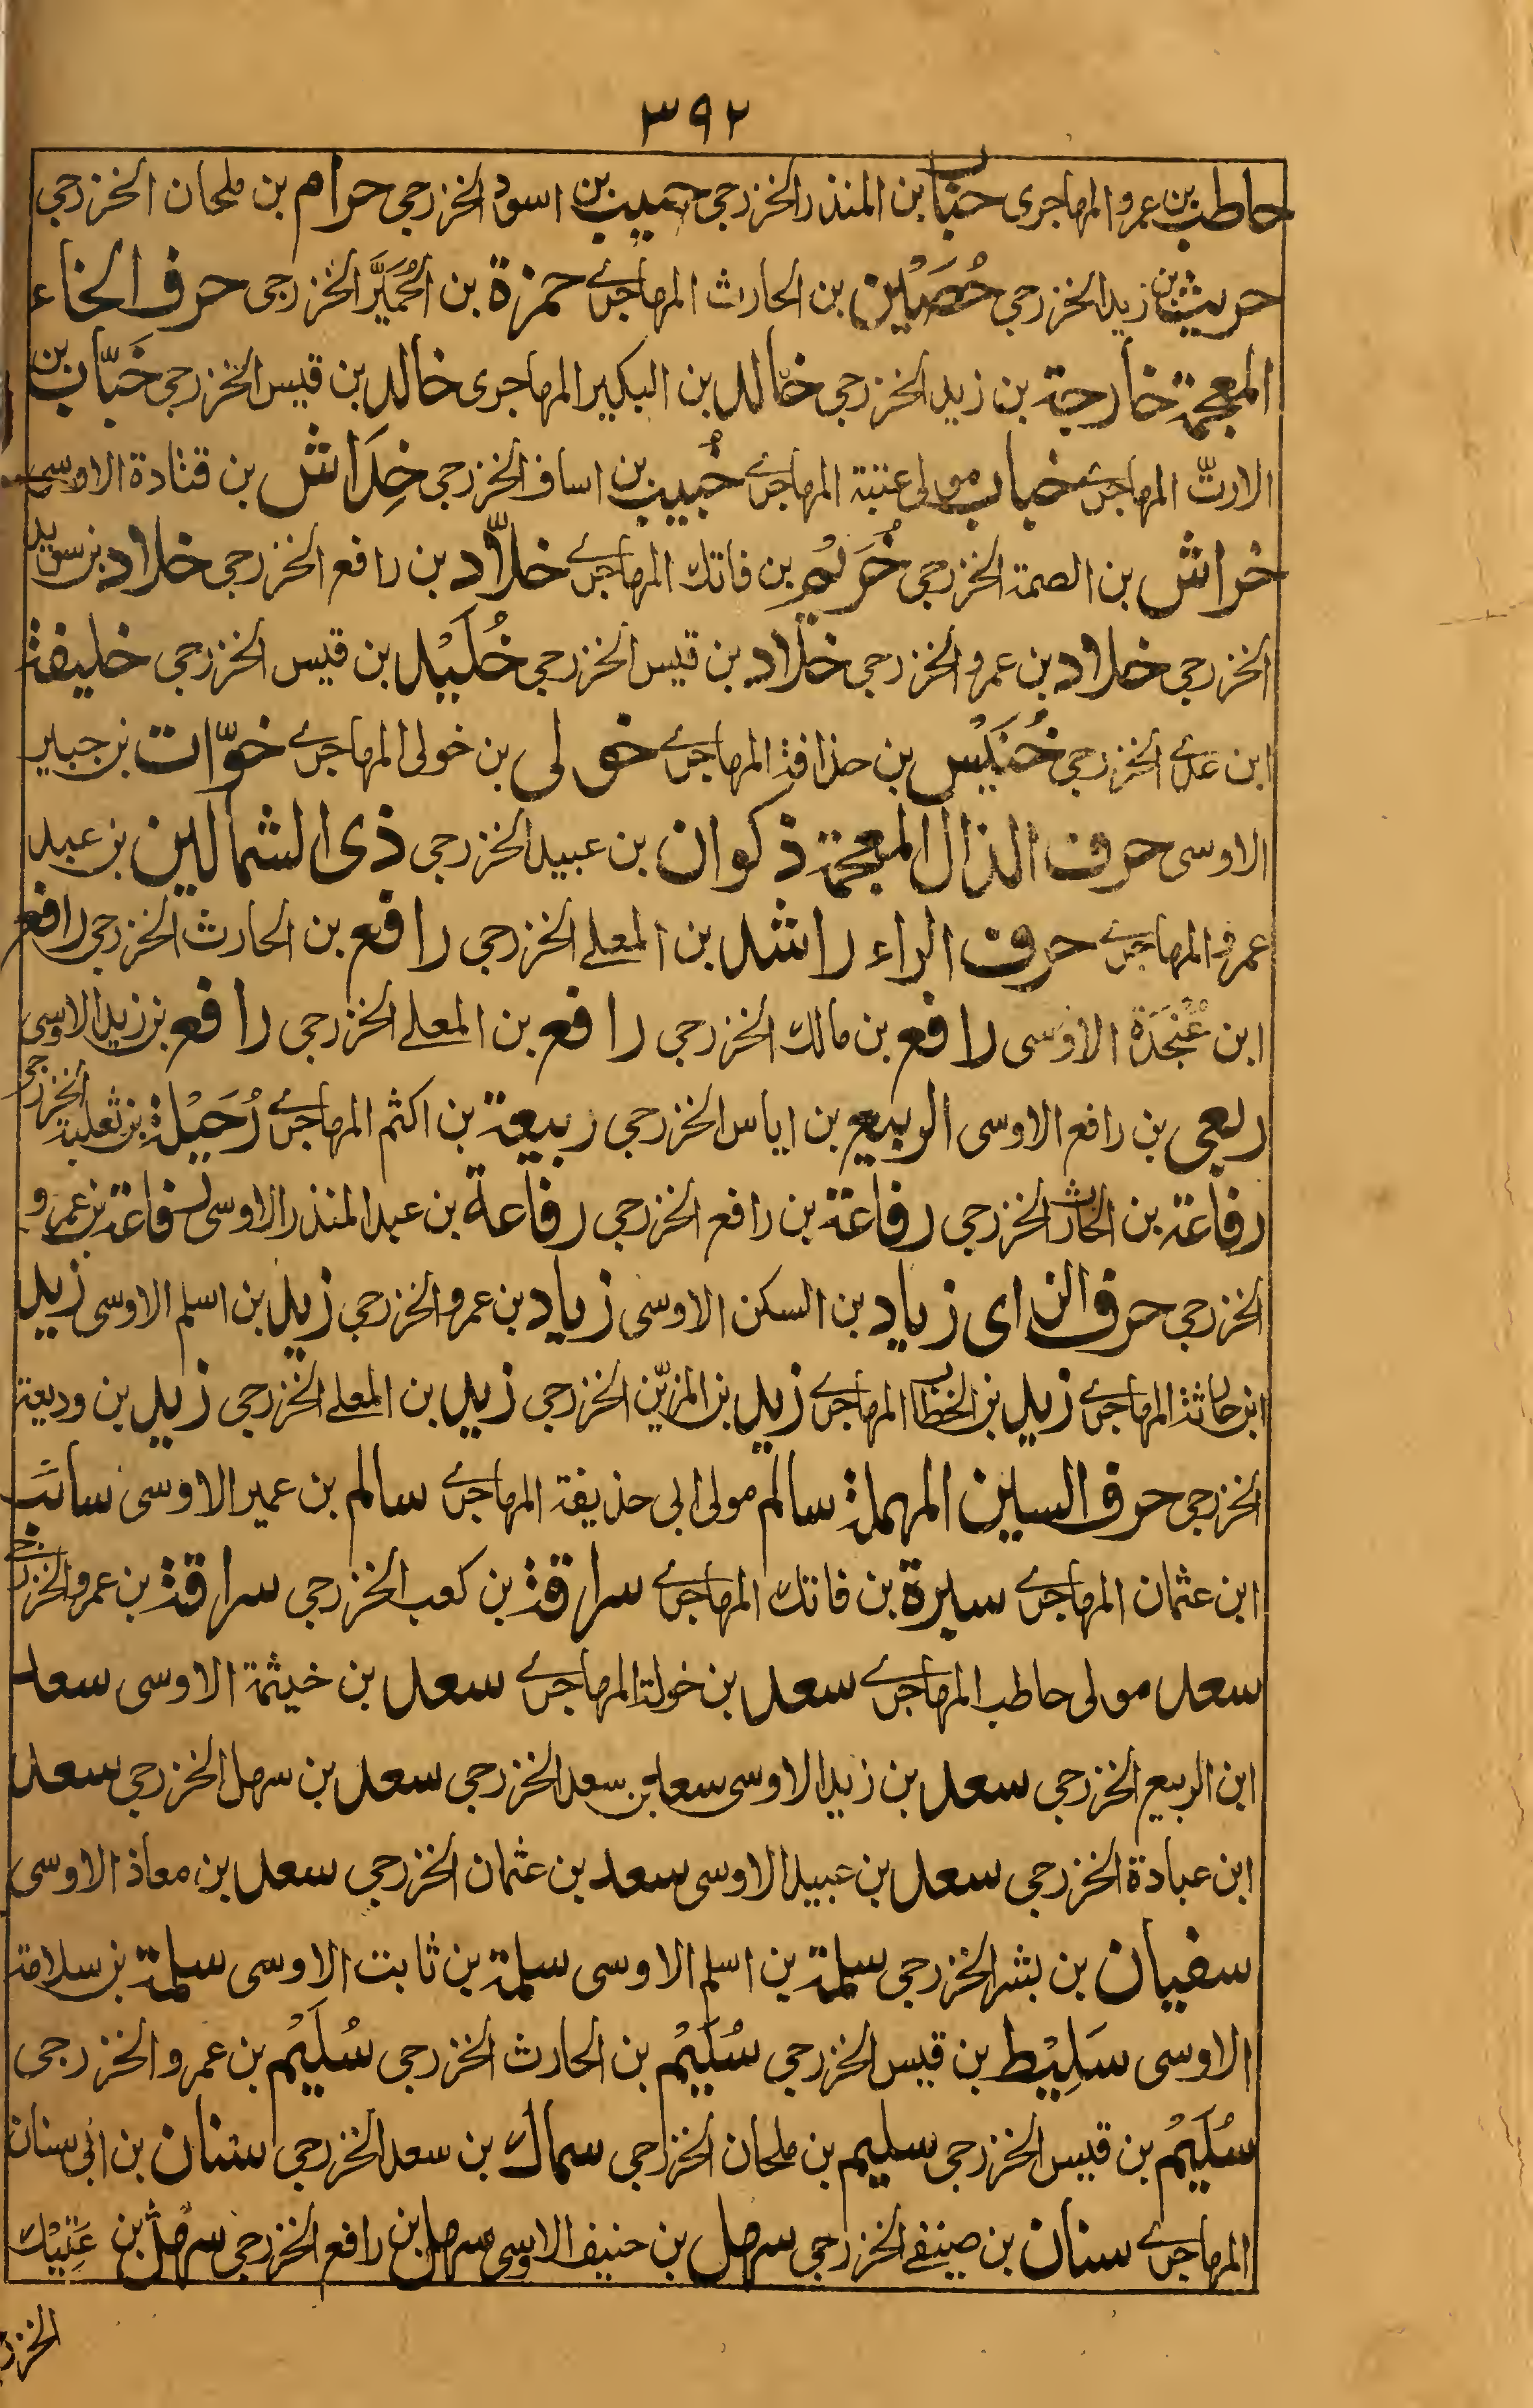 ٣٩٢
حاطب بن عمرو المهاجرى حباب بن المنذر الخزرجي حبيب بن اسود الخزرجي حرام بن ملحان الخزرجي
حريث بن زيد الخزرجي حُصَيْن بن الحارث المهاجرے حمزة بن الحُمَيَّر الخزرجى حرف الخاء
المعجمة خارجة بن زيد الخزرجي خالد بن البكير المهاجرى خالد بن قيس الخزرجي خَبّاب بن
الارتّ المهاجرے خباب مولى عتبة المهاجرے خُبيب بن اساف الخزرجي خِدَاش بن قتادة الاوسى
خراش بن الصمة الخزرجي خُرَيْم بن فاتك المهاجرے خلّاد بن رافع الخزرجي خلاد بن سويد
الخزرجي خلاد بن عمرو الخزرجي خلّاد بن قيس الخزرجي خُلَيْد بن قيس الخزرجي خليفة
ابن عدے الخزرجي خُنَيْس بن حذافة المهاجرے خولى بن خولى المهاجرے خوّات بن جبير
الاوسى حرف الذال المعجمة ذكوان بن عبيد الخزرجي ذى الشمالين بن عبد
عمرو المهاجرے حرف الراء راشد بن المعلے الخزرجي رافع بن الحارث الخزرجي رافع
ابن عُنْجَدَة الاوسى رافع بن مالك الخزرجي رافع بن المعلے الخزرجي رافع بن زيد الاوسى
ربعى بن رافع الاوسى الربيع بن اياس الخزرجي ربيعة بن اكثم المهاجرے رُحَيْلة بن ثعلبة الخزرجى
رفاعة بن الحارث الخزرجي رفاعة بن رافع الخزرجي رفاعة بن عبد المنذر الاوسى رفاعة بن عمرو
الخزرجي حرف الزاى زياد بن السكن الاوسى زياد بن عمرو الخزرجي زيد بن اسلم الاوسى زيد
ابن حارثة المهاجرے زيد بن الخطاب المهاجرے زيد بن المزيّن الخزرجي زيد بن المعلے الخزرجي زيد بن وديعة
الخزرجي حرف السين المهملة سالم مولى ابى حذيفة المهاجرے سالم بن عمير الاوسى سائب
ابن عثمان المهاجرے سبرة بن فاتك المهاجرے سراقة بن كعب الخزرجي سراقة بن عمرو الخزرجے
سعد مولى حاطب المهاجرے سعد بن خولة المهاجرے سعد بن خيثمة الاوسى سعد
ابن الربيع الخزرجي سعد بن زيد الاوسى سعد بن سعد الخزرجي سعد بن سهل الخزرجي سعد
ابن عبادة الخزرجي سعد بن عبيد الاوسى سعد بن عثمان الخزرجي سعد بن معاذ الاوسى
سفيان بن بشر الخزرجي سلمة بن اسلم الاوسى سلمة بن ثابت الاوسى سلمة بن سلامة
الاوسى سَلِيْط بن قيس الخزرجي سُلَيْم بن الحارث الخزرجي سُلَيْم بن عمرو الخزرجى
سُلَيْم بن قيس الخزرجي سليم بن ملحان الخزرجي سماك بن سعد الخزرجي سنان بن ابى سنان
المهاجرے سنان بن صيفے الخزرجي سهل بن حنيف الاوسى سهل بن رافع الخزرجي سهل بن عَتِيْك
الخزر